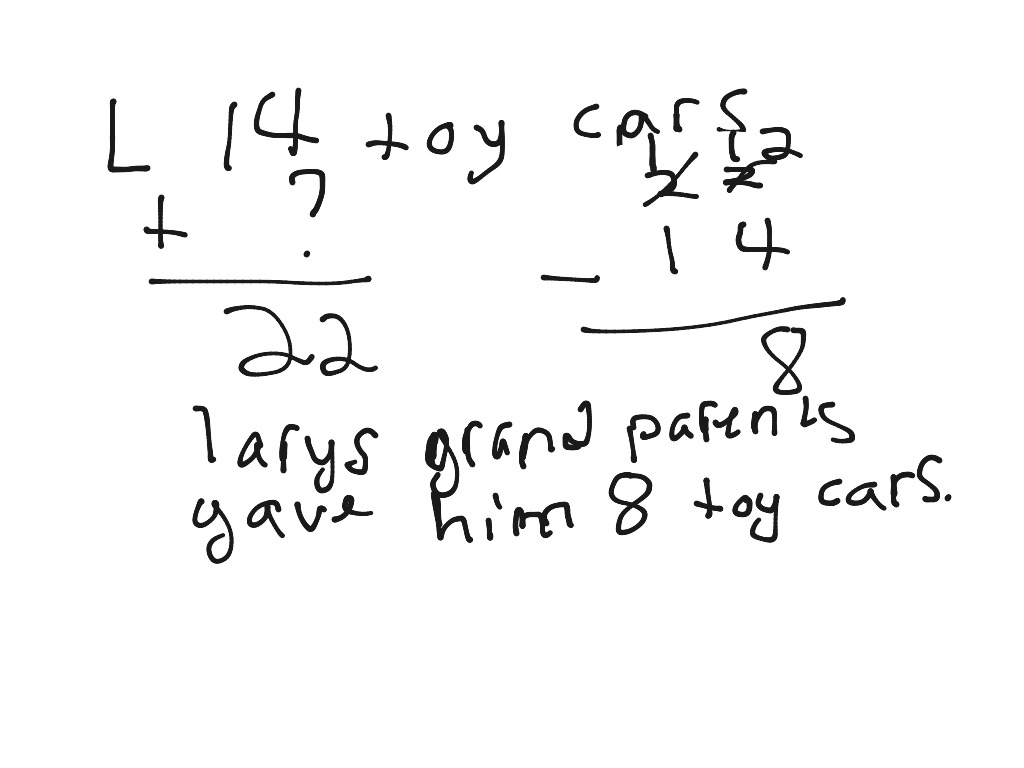 L 14 toy cars
+ ?
22
1 12
2 2
- 1 4
8
larys grand parents
gave him 8 toy cars.